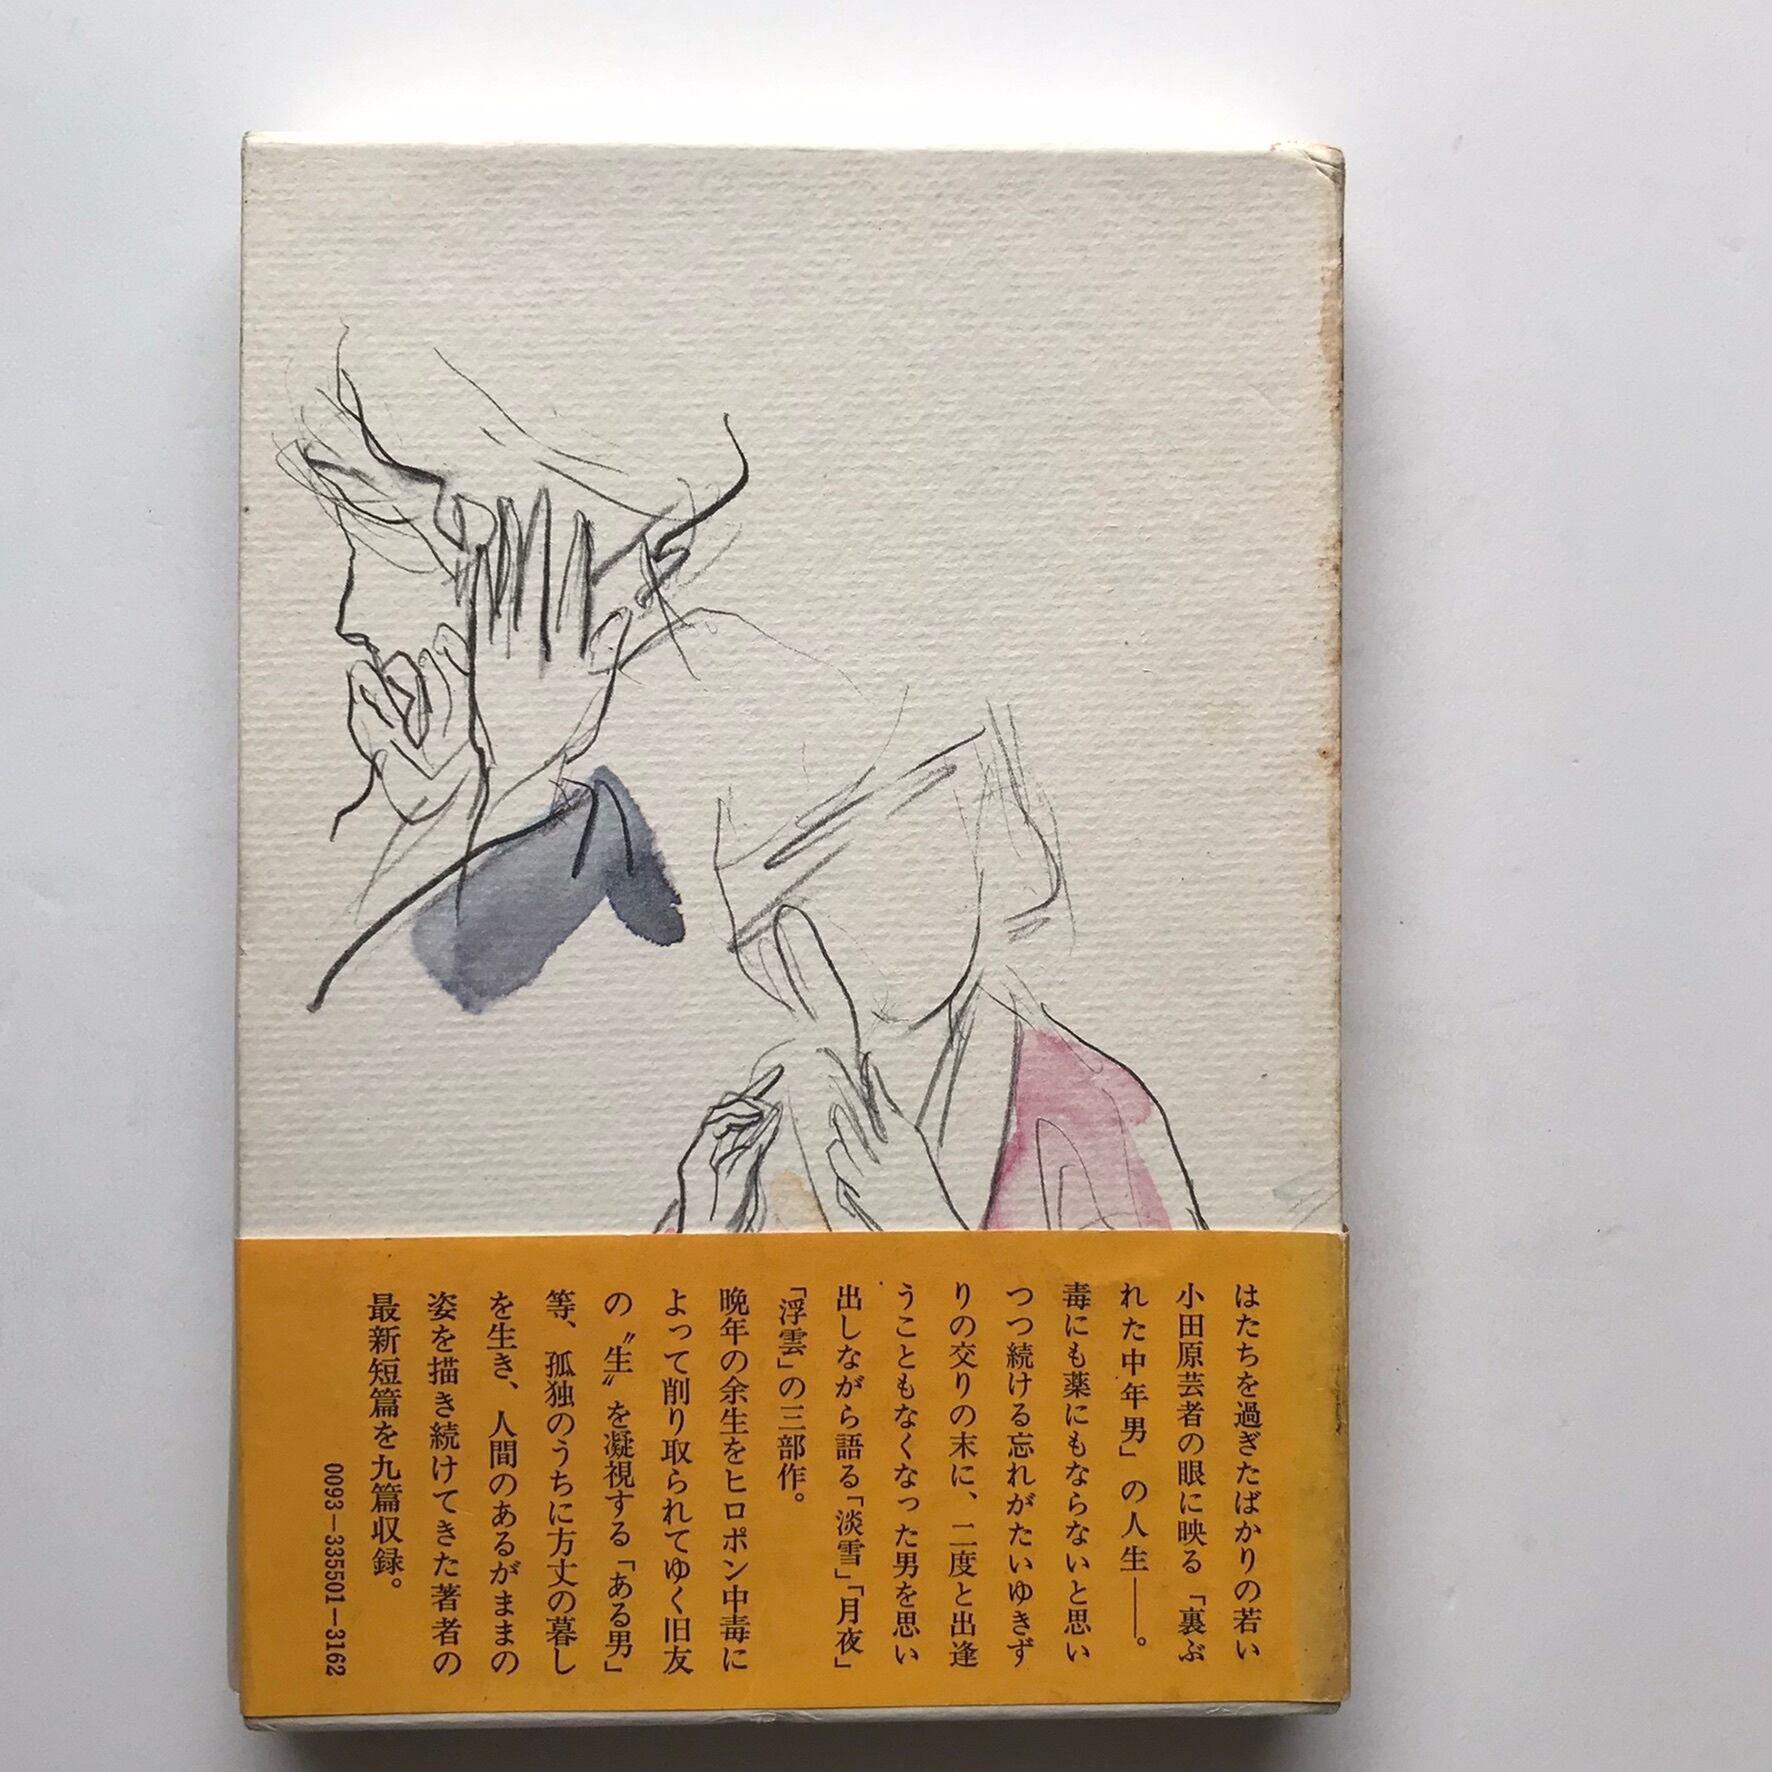 はたちを過ぎたばかりの若い
小田原芸者の眼に映る「裏ぶ
れた中年男」の人生――。
毒にも薬にもならないと思い
つつ続ける忘れがたいゆきず
りの交りの末に、二度と出逢
うこともなくなった男を思い
出しながら語る「淡雪」「月夜」
「浮雲」の三部作。
晩年の余生をヒロポン中毒に
よって削り取られてゆく旧友
の〝生〟を凝視する「ある男」
等、孤独のうちに方丈の暮し
を生き、人間のあるがままの
姿を描き続けてきた著者の
最新短篇を九篇収録。
0093-335501-3162